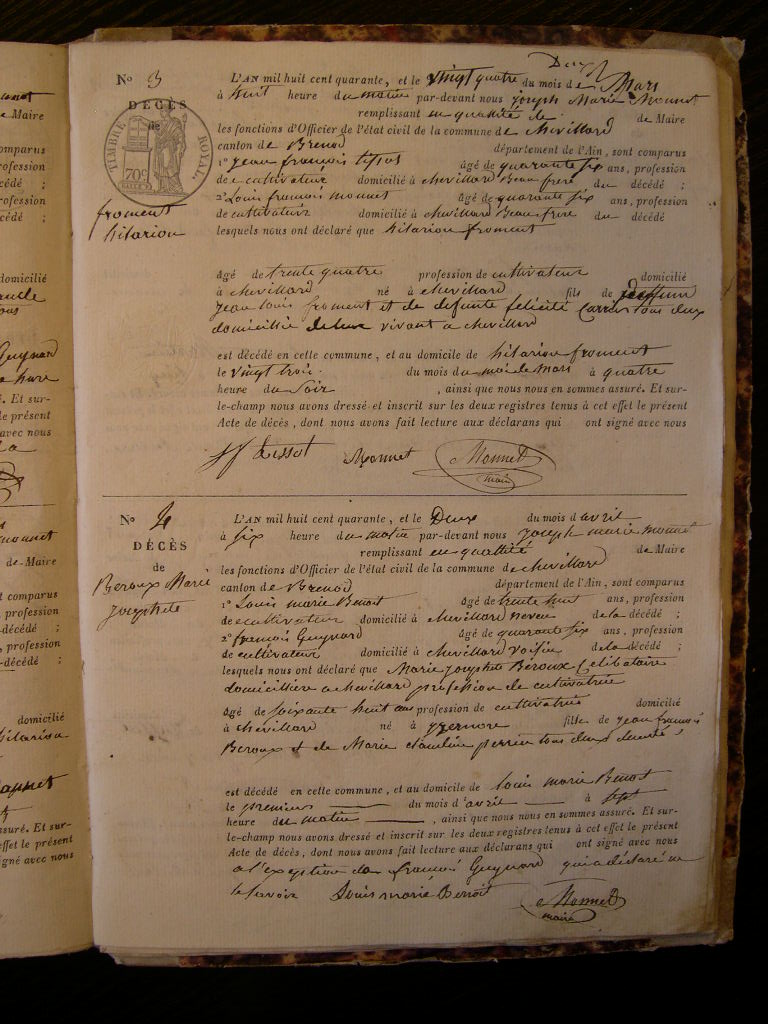 N° 3
DÉCÈS
de
TIMBRE ROYAL
froment
hilarion
L'AN mil huit cent quarante, et le vingt quatre du mois de Mars
à huit heure du matin par-devant nous joseph Marie Monnet
remplissant en qualité de de Maire
les fonctions d'Officier de l'état civil de la commune de chevillard
canton de Brenod département de l'Ain, sont comparus
1° jean francois tissot âgé de quarante six ans, profession
de cultivateur domicilié à chevillard Beau frere du décédé ;
2° Louis francois monnet âgé de quarante six ans, profession
de cultivateur domicilié à chevillard Beau frere du décédé
lesquels nous ont déclaré que hilarion froment
âgé de trente quatre profession de cultivateur domicilié
à chevillard né à chevillard fils de
jean louis froment et de defunte felicité Carrier tous deux
domicilié de leur vivant a chevillard
est décédé en cette commune, et au domicile de hilarion froment
le vingt trois du mois de mars à quatre
heure du soir , ainsi que nous nous en sommes assuré. Et sur-
le-champ nous avons dressé et inscrit sur les deux registres tenus à cet effet le présent
Acte de décès, dont nous avons fait lecture aux déclarans qui ont signé avec nous
jf tissot Monnet Monnet
maire
N° 4
DÉCÈS
de
Beroux Marie
josephete
L'AN mil huit cent quarante, et le Deux du mois d'avril
à six heure du matin par-devant nous joseph marie monnet
remplissant en quallité de Maire
les fonctions d'Officier de l'état civil de la commune de chevillard
canton de Brenod département de l'Ain, sont comparus
1° Louis marie Benoit âgé de trente huit ans, profession
de cultivateur domicilié à chevillard neveu de la décédé ;
2° francois Guynard âgé de quarante six ans, profession
de cultivateur domicilié à chevillard voisin de la décédé ;
lesquels nous ont déclaré que Marie josephete Beroux Celibataire
domicilier a chevillard profession de cultivatrice
âgé de soixante huit ans profession de cultivatrice domicilié
à chevillard né à yzernore fille de jean francois
Beroux et de Marie claudine perrin tous deux
est décédé en cette commune, et au domicile de louis marie Benoit
le premiers du mois d'avril à sept
heure du matin , ainsi que nous nous en sommes assuré. Et sur-
le-champ nous avons dressé et inscrit sur les deux registres tenus à cet effet le présent
Acte de décès, dont nous avons fait lecture aux déclarans qui ont signé avec nous
a l'exeption de francois Guynard qui a déclaré ne
le savoir Louis marie Benoit Monnet
maire